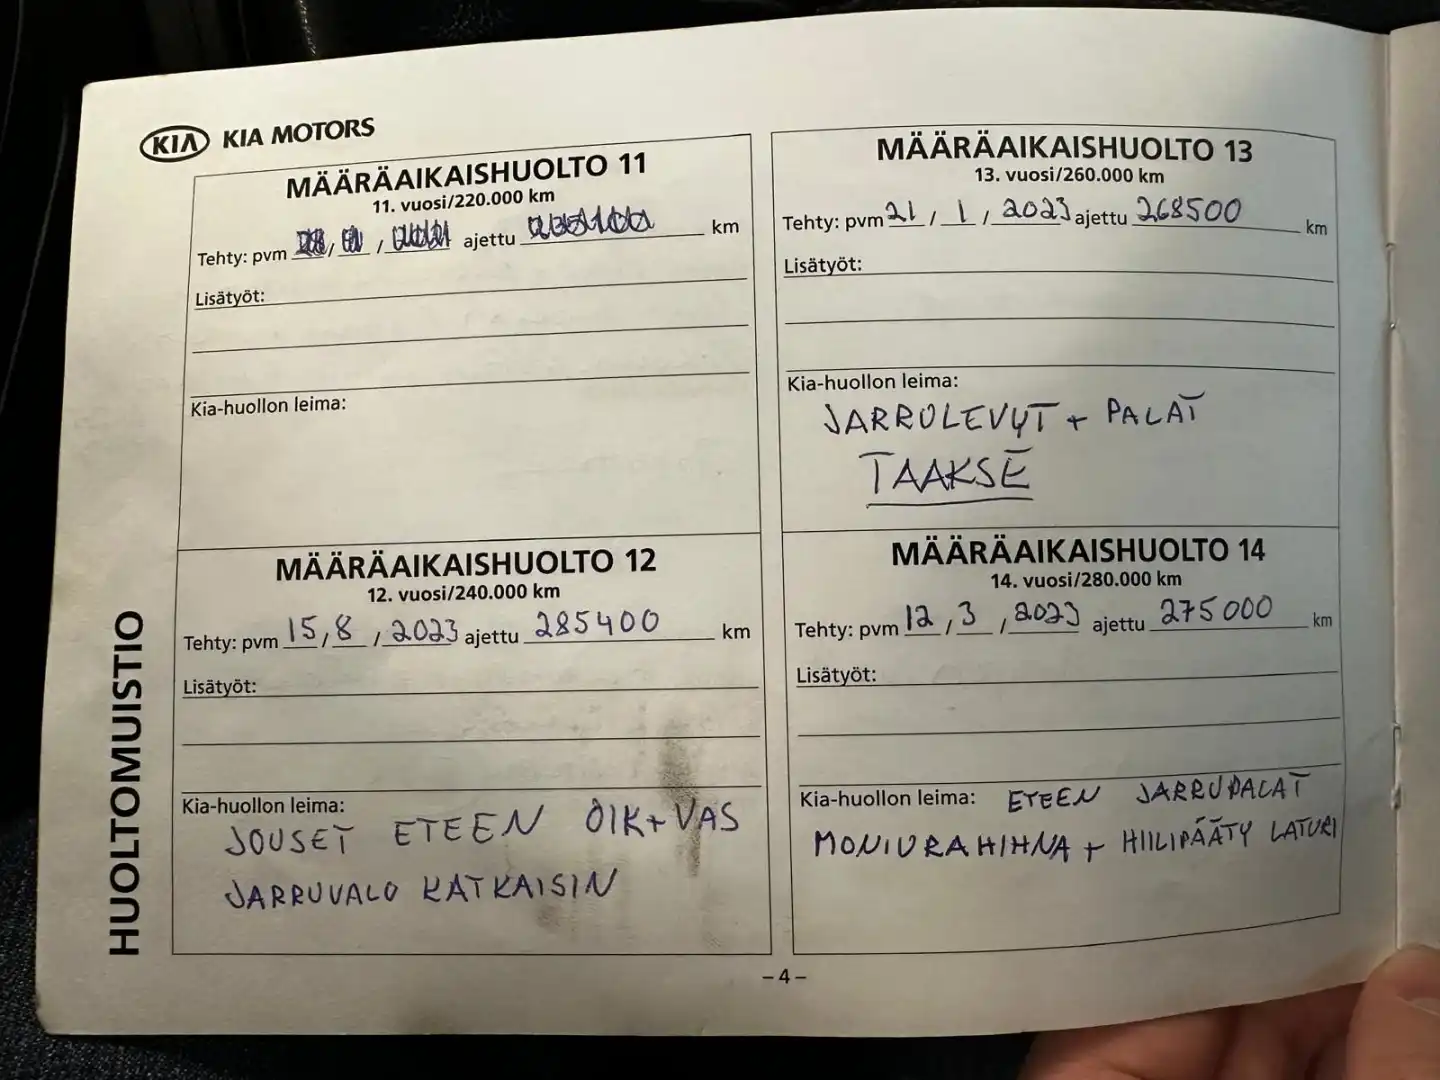 KIA KIA MOTORS
MÄÄRÄAIKAISHUOLTO 11
11. vuosi/220.000 km
Tehty: pvm / / ajettu km
Lisätyöt:
Kia-huollon leima:
MÄÄRÄAIKAISHUOLTO 12
12. vuosi/240.000 km
Tehty: pvm 15 / 8 / 2023 ajettu 285400 km
Lisätyöt:
Kia-huollon leima:
JOUSET ETEEN OIK+VAS
JARRUVALO KATKAISIN
MÄÄRÄAIKAISHUOLTO 13
13. vuosi/260.000 km
Tehty: pvm 21 / 1 / 2023 ajettu 268500 km
Lisätyöt:
Kia-huollon leima:
JARRULEVYT + PALAT
TAAKSE
MÄÄRÄAIKAISHUOLTO 14
14. vuosi/280.000 km
Tehty: pvm 12 / 3 / 2023 ajettu 275000 km
Lisätyöt:
Kia-huollon leima: ETEEN JARRUPALAT
MONIURAHIHNA + HIILIPÄÄTY LATURI
HUOLTOMUISTIO
– 4 –